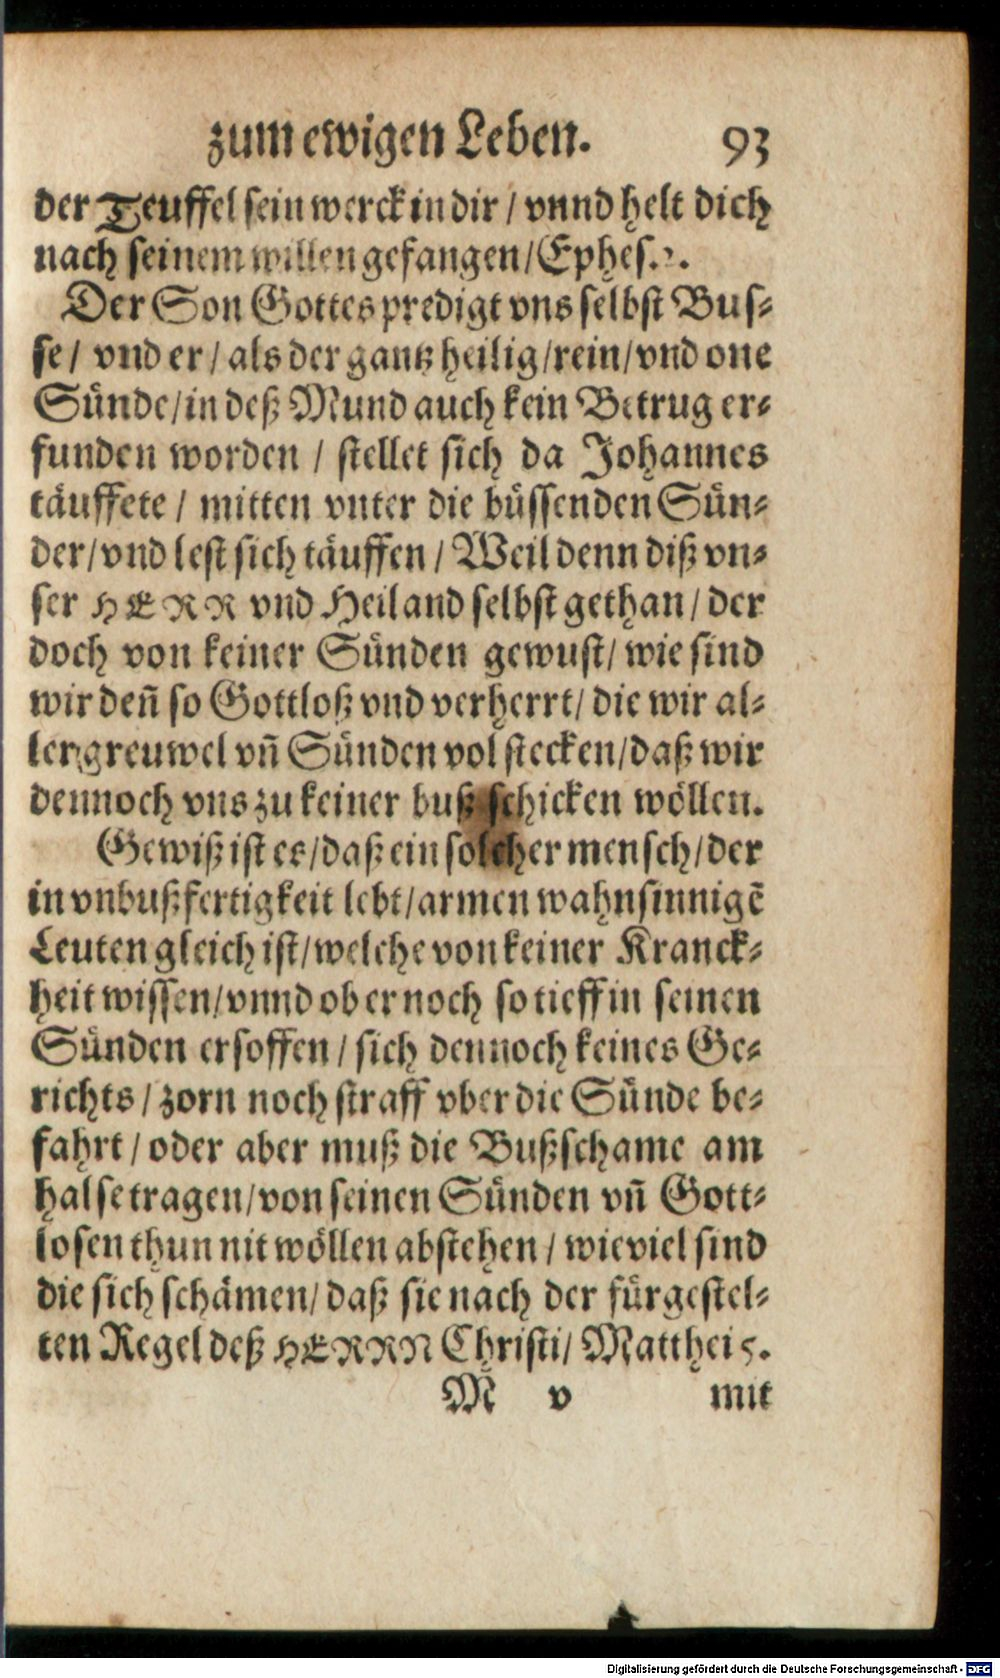 zum ewigen Leben. 93
der Teuffel sein werck in dir / vnnd helt dich
nach seinem willen gefangen / Ephes. 2.
Der Son Gottes predigt vns selbst Bus-
se / vnd er / als der gantz heilig / rein / vnd one
Sünde / in deß Mund auch kein Betrug er-
funden worden / stellet sich da Johannes
täuffete / mitten vnter die büssenden Sün-
der / vnd lest sich täuffen / Weil denn diß vn-
ser HERR vnd Heiland selbst gethan / der
doch von keiner Sünden gewust / wie sind
wir deñ so Gottloß vnd verherrt / die wir al-
ler greuwel vñ Sünden vol stecken / daß wir
dennoch vns zu keiner buß schicken wöllen.
Gewiß ist es / daß ein solcher mensch / der
in vnbußfertigkeit lebt / armen wahnsinnigẽ
Leuten gleich ist / welche von keiner Kranck-
heit wissen / vnnd ob er noch so tieff in seinen
Sünden ersoffen / sich dennoch keines Ge-
richts / zorn noch straff vber die Sünde be-
fahrt / oder aber muß die Bußschame am
halse tragen / von seinen Sünden vñ Gott-
losen thun nit wöllen abstehen / wie viel sind
die sich schämen / daß sie nach der fürgestel-
ten Regel deß HERRN Christi / Matthei 5.
M v mit
Digitalisierung gefördert durch die Deutsche Forschungsgemeinschaft - DFG